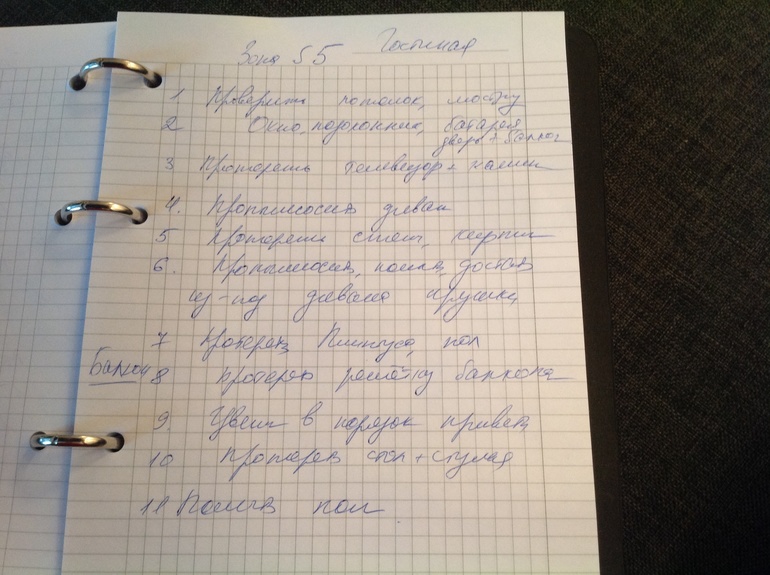 Зона §5 Гостиная
1 Проверить потолок, люстру
2 Окно, подоконник, батарея
дверь + балкон
3 Протереть телевизор + камин
4. Пропылесосить диван
5 Протереть стены, картины
6. Пропылесосить, достать
из-под дивана игрушки
7 Протереть плинтуса, пол
Балкон 8 протереть решётку балкона
9. Цветы в порядок привести
10 Протереть стол + стулья
11 Помыть пол